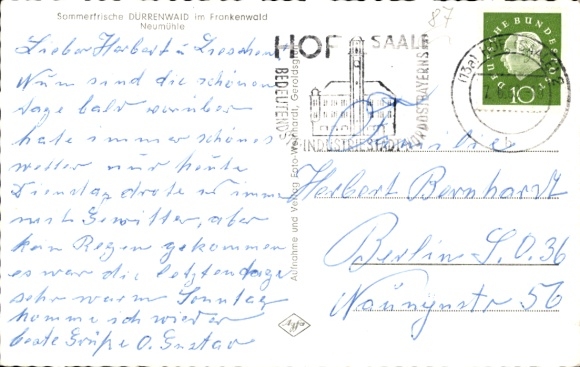 Sommerfrische DÜRRENWAID im Frankenwald
Neumühle
Lieber Herbert u. Lieschen
Nun sind die schönen
Tage bald vorüber
hate immer schönes
wetter nur heute
Dienstag drote es imm
nach Gewitter, aber
kan Regen gekommen
es war die letzten Tage
sehr warm Sonntag
komme ich wieder
beste Grüße O. Gustav
87
HOF SAALE
BEDEUTENDE
INDUSTRIESTADT
NORDOSTBAYERNS
(13a) HOF (SAALE)
DEUTSCHE BUNDESPOST
10
Aufnahme und Verlag Foto-Weinhardt, Geroldsgrün
Familie
Herbert Bernhardt
Berlin S.O. 36
Naunynstr 56
Agfa